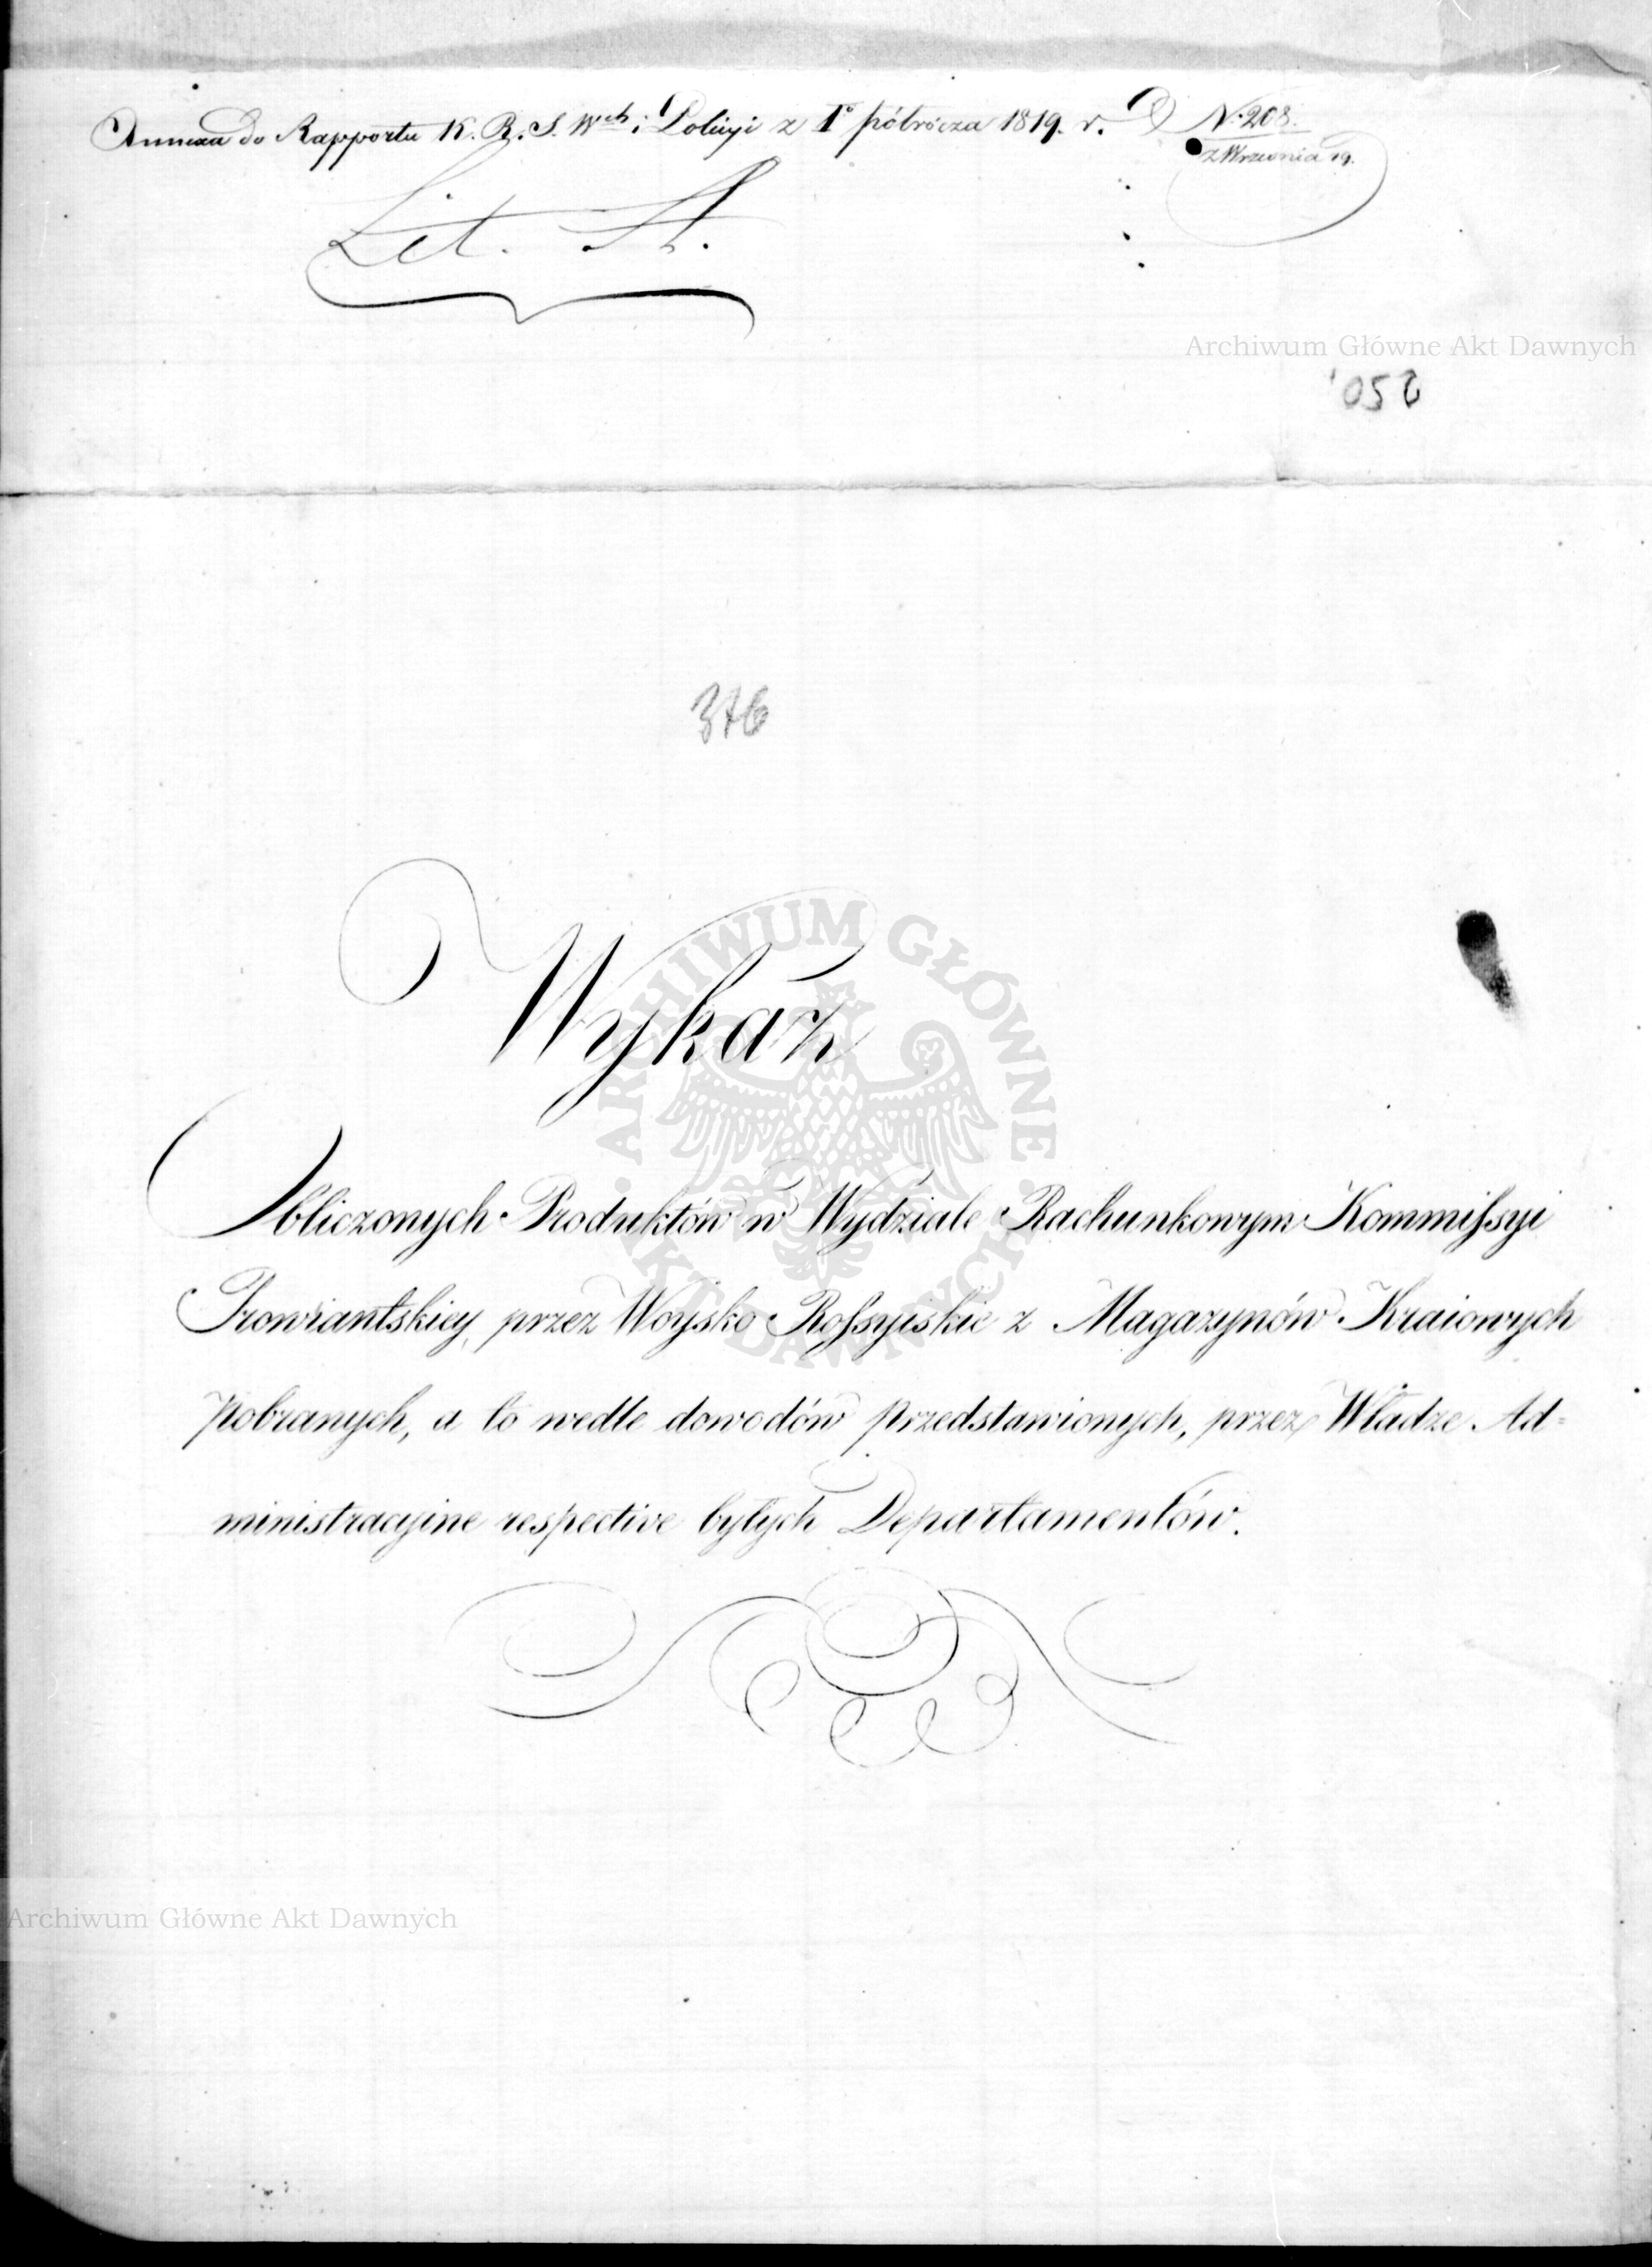 Annexa do Rapportu K. R. S. Wch i Policyi z 1o półrocza 1819. r.
N. 208.
z Września 19.
Lit. A.
Archiwum Główne Akt Dawnych
250.
376
Wykaz
Obliczonych Produktów w Wydziale Rachunkowym Kommissyi
Prowiantskiey, przez Woysko Rossyiskie z Magazynów Kraiowych
pobranych, a to wedle dowodów przedstawionych, przez Władze Ad=
ministracyine respective byłych Departamentów.
ARCHIWUM GŁÓWNE AKT DAWNYCH
Archiwum Główne Akt Dawnych